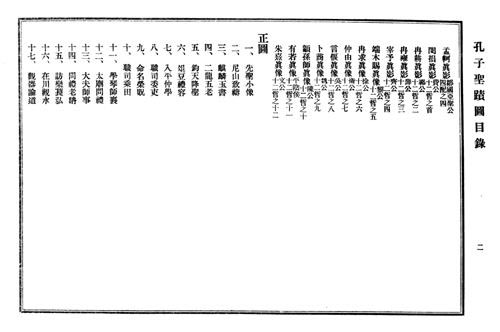 孔子聖蹟圖目錄
二
孟軻眞影 鄒國亞聖公 四配之四
閔損眞影 費公 十二哲之首
冉耕眞影 鄆公 十二哲之二
冉雍眞影 薛公 十二哲之三
宰予眞影 齊公 十二哲之四
端木賜眞像 黎公 十二哲之五
冉求眞像 徐公 十二哲之六
仲由眞像 衞公 十二哲之七
言偃眞像 吳公 十二哲之八
卜商眞像 魏公 十二哲之九
顓孫師眞像 陳公 十二哲之十
有若眞像 平陰侯 十二哲之十一
朱熹眞像 文公 十二哲之十二
正圖
一、先聖小像
二、尼山致禱
三、麒麟玉書
四、二龍五老
五、鈞天降聖
六、俎豆禮容
七、入平仲學
八、職司委吏
九、命名榮貺
十、職司乘田
十一、學琴師襄
十二、太廟問禮
十三、大夫師事
十四、問禮老聃
十五、訪樂萇弘
十六、在川觀水
十七、觀器論道